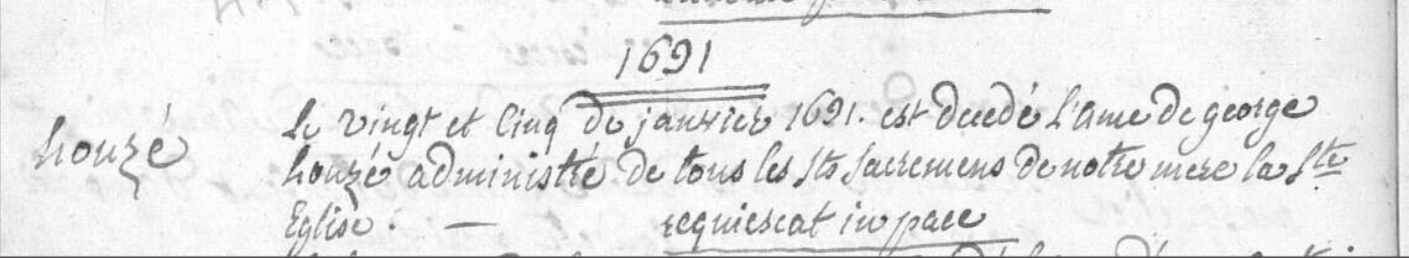 1691
houzé
Le vingt et Cinq de janvier 1691. est decedé l'ame de george
houzé administré de tous les sts sacremens de notre mere la ste
Eglise. —
requiescat in pace